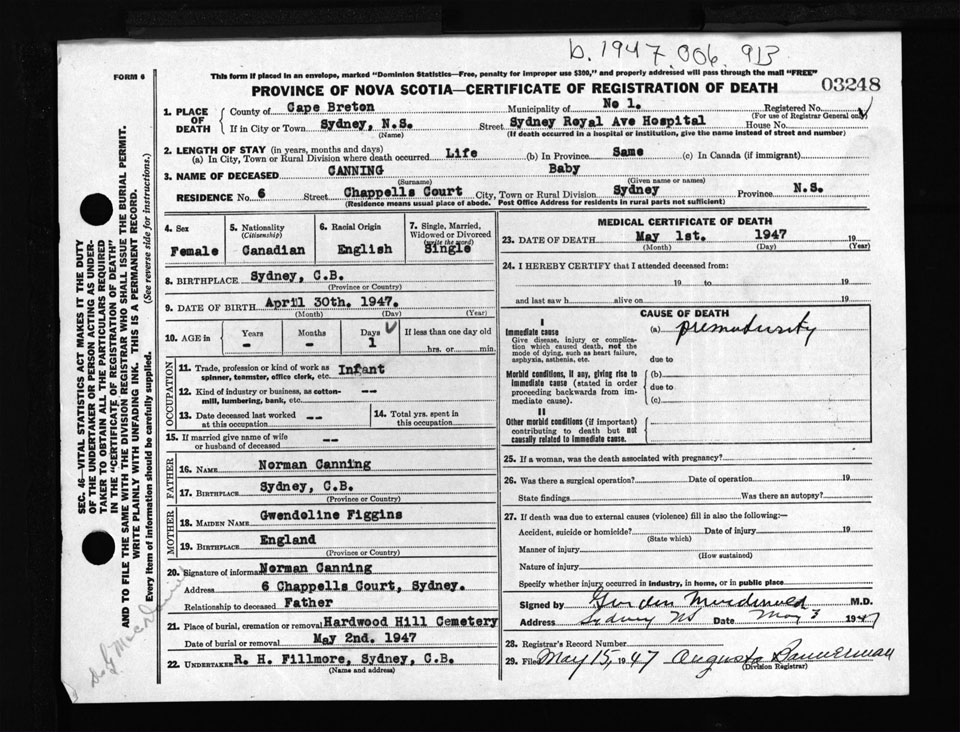 b. 1947.006.913
FORM 6
This form if placed in an envelope, marked "Dominion Statistics—Free, penalty for improper use $300," and properly addressed will pass through the mail "FREE"
PROVINCE OF NOVA SCOTIA—CERTIFICATE OF REGISTRATION OF DEATH
03248
1. PLACE OF DEATH
County of Cape Breton Municipality of No 1. Registered No.
(For use of Registrar General only)
If in City or Town Sydney, N.S. Street Sydney Royal Ave Hospital House No.
(Name) (If death occurred in a hospital or institution, give the name instead of street and number)
2. LENGTH OF STAY (in years, months and days)
(a) In City, Town or Rural Division where death occurred Life (b) In Province Same (c) In Canada (if immigrant)
3. NAME OF DECEASED CANNING Baby
(Surname) (Given name or names)
RESIDENCE No. 6 Street Chappells Court City, Town or Rural Division Sydney Province N.S.
(Residence means usual place of abode. Post Office Address for residents in rural parts not sufficient)
4. Sex
Female
5. Nationality
(Citizenship)
Canadian
6. Racial Origin
English
7. Single, Married,
Widowed or Divorced
(write the word)
Single
8. BIRTHPLACE Sydney, C.B.
(Province or Country)
9. DATE OF BIRTH April 30th. 1947.
(Month) (Day) (Year)
10. AGE in
Years
–
Months
–
Days
1
If less than one day old
hrs. or min.
OCCUPATION
11. Trade, profession or kind of work as Infant
spinner, teamster, office clerk, etc.
12. Kind of industry or business, as cotton- --
mill, lumbering, bank, etc.
13. Date deceased last worked --
at this occupation
14. Total yrs. spent in
this occupation
15. If married give name of wife
or husband of deceased --
FATHER
16. NAME Norman Canning
17. BIRTHPLACE Sydney, C.B.
(Province or Country)
MOTHER
18. MAIDEN NAME Gwendoline Figgins
19. BIRTHPLACE England
(Province or Country)
20. Signature of informant Norman Canning
Address 6 Chappells Court, Sydney.
Relationship to deceased Father
21. Place of burial, cremation or removal Hardwood Hill Cemetery
Date of burial or removal May 2nd. 1947
22. UNDERTAKER R. H. Fillmore, Sydney, C.B.
(Name and address)
MEDICAL CERTIFICATE OF DEATH
23. DATE OF DEATH May 1st. 1947 19
(Month) (Day) (Year)
24. I HEREBY CERTIFY that I attended deceased from:
19 to 19
and last saw h alive on 19
CAUSE OF DEATH
I
Immediate cause (a) prematurity
Give disease, injury or complica-
tion which caused death, not the
mode of dying, such as heart failure,
asphyxia, asthenia, etc. due to
Morbid conditions, if any, giving rise to (b)
immediate cause (stated in order due to
proceeding backwards from im-
mediate cause). (c)
II
Other morbid conditions (if important)
contributing to death but not
causally related to immediate cause.
25. If a woman, was the death associated with pregnancy?
26. Was there a surgical operation? Date of operation 19
State findings Was there an autopsy?
27. If death was due to external causes (violence) fill in also the following:—
Accident, suicide or homicide? Date of injury 19
(State which)
Manner of injury
(How sustained)
Nature of injury
Specify whether injury occurred in industry, in home, or in public place
Signed by Gordon Macdonald M.D.
Address Sydney NS Date May 3 1947
28. Registrar's Record Number
29. Filed May 15, 1947 Augusta Bannerman
(Division Registrar)
SEC. 46—VITAL STATISTICS ACT MAKES IT THE DUTY
OF THE UNDERTAKER OR PERSON ACTING AS UNDER-
TAKER TO OBTAIN ALL THE PARTICULARS REQUIRED
IN THE "CERTIFICATE OF REGISTRATION OF DEATH"
AND TO FILE THE SAME WITH THE DIVISION REGISTRAR WHO SHALL ISSUE THE BURIAL PERMIT.
WRITE PLAINLY WITH UNFADING INK. THIS IS A PERMANENT RECORD.
Every item of information should be carefully supplied. (See reverse side for instructions.)